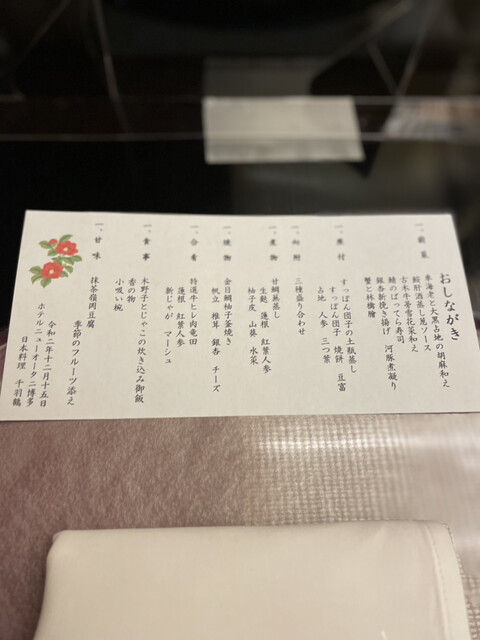 おしながき
一、前菜
車海老と大黒占地の胡麻和え
鮟肝酒蒸し見ソース
古木牛蒡雪花菜和え
鯖のばってら寿司　河豚煮凝り
銀杏新挽き揚げ
蟹と林檎膾
一、煮付
すっぽん団子の土瓶蒸し
すっぽん団子　焼餅　豆富
占地　人参　三つ葉
一、向附
三種盛り合わせ
一、煮物
甘鯛蕪蒸し
生麩　蓮根　紅葉人参
柚子皮　山葵　水菜
一、焼物
金目鯛柚子釜焼き
帆立　椎茸　銀杏　チーズ
一、合肴
特選牛ヒレ肉竜田
蓮根　紅葉人参
新じゃが　マーシュ
一、食事
木野子とじゃこの炊き込み御飯
香の物
小吸い椀
一、甘味
抹茶嶺岡豆腐
季節のフルーツ添え
令和二年十二月十五日
ホテルニューオータニ博多
日本料理　千羽鶴